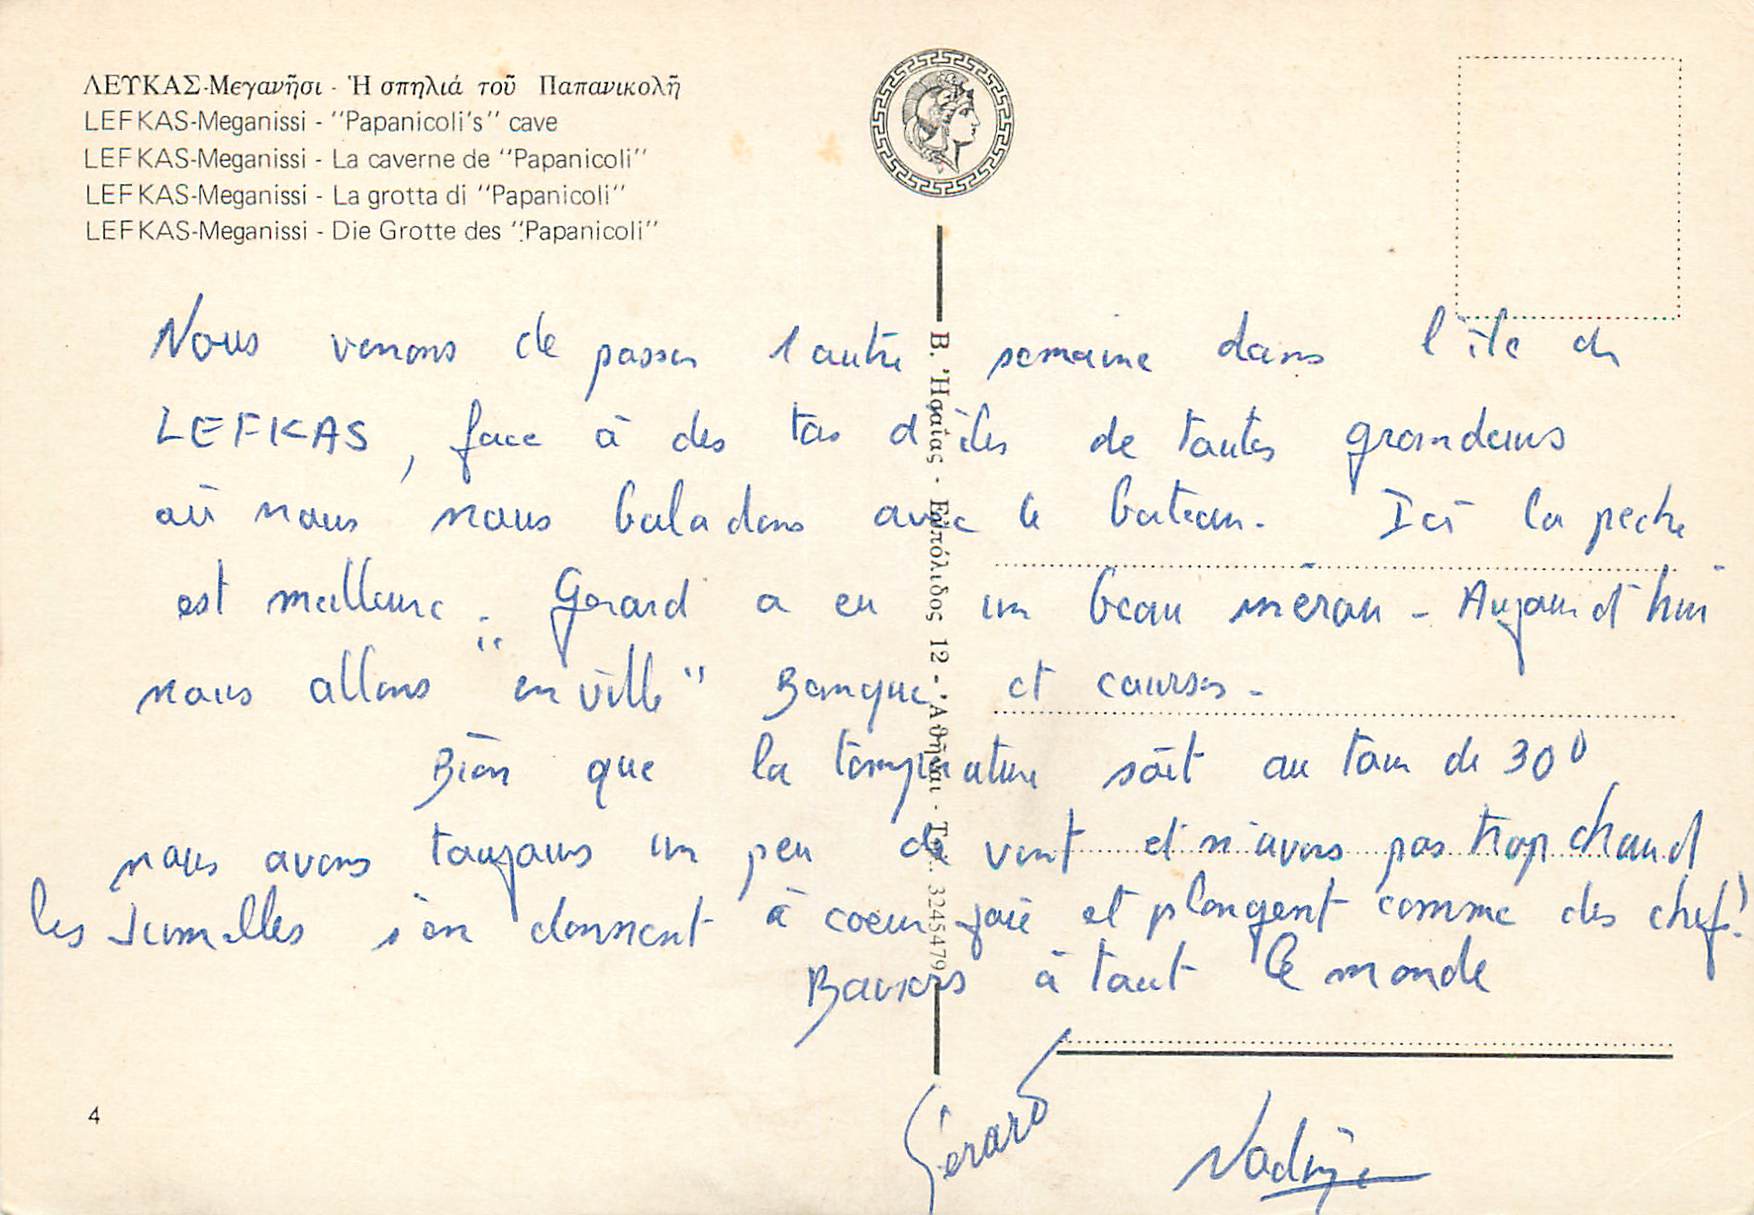 ΛΕΥΚΑΣ-Μεγανῆσι - Ἡ σπηλιά τοῦ Παπανικολῆ
LEFKAS-Meganissi - "Papanicoli's" cave
LEFKAS-Meganissi - La caverne de "Papanicoli"
LEFKAS-Meganissi - La grotta di "Papanicoli"
LEFKAS-Meganissi - Die Grotte des "Papanicoli"
Nous venons de passer l'autre semaine dans l'île de
LEFKAS, face à des tas d'îles de toutes grandeurs
où nous nous baladons avec le bateau. Ici la peche
est meilleure. Gerard a eu un beau mérou - Aujourd'hui
nous allons "en ville" Banque et courses -
Bien que la température soit au tour de 30°
nous avons toujours un peu de vent et n'avons pas trop chaud
les Jumelles s'en donnent à coeur joie et plongent comme des chefs!
Baisers à tout le monde
Gérard
Nadine
Β. Ἠσαΐας - Εὐπόλιδος 12 - Ἀθῆναι - Τηλ. 3245479
4